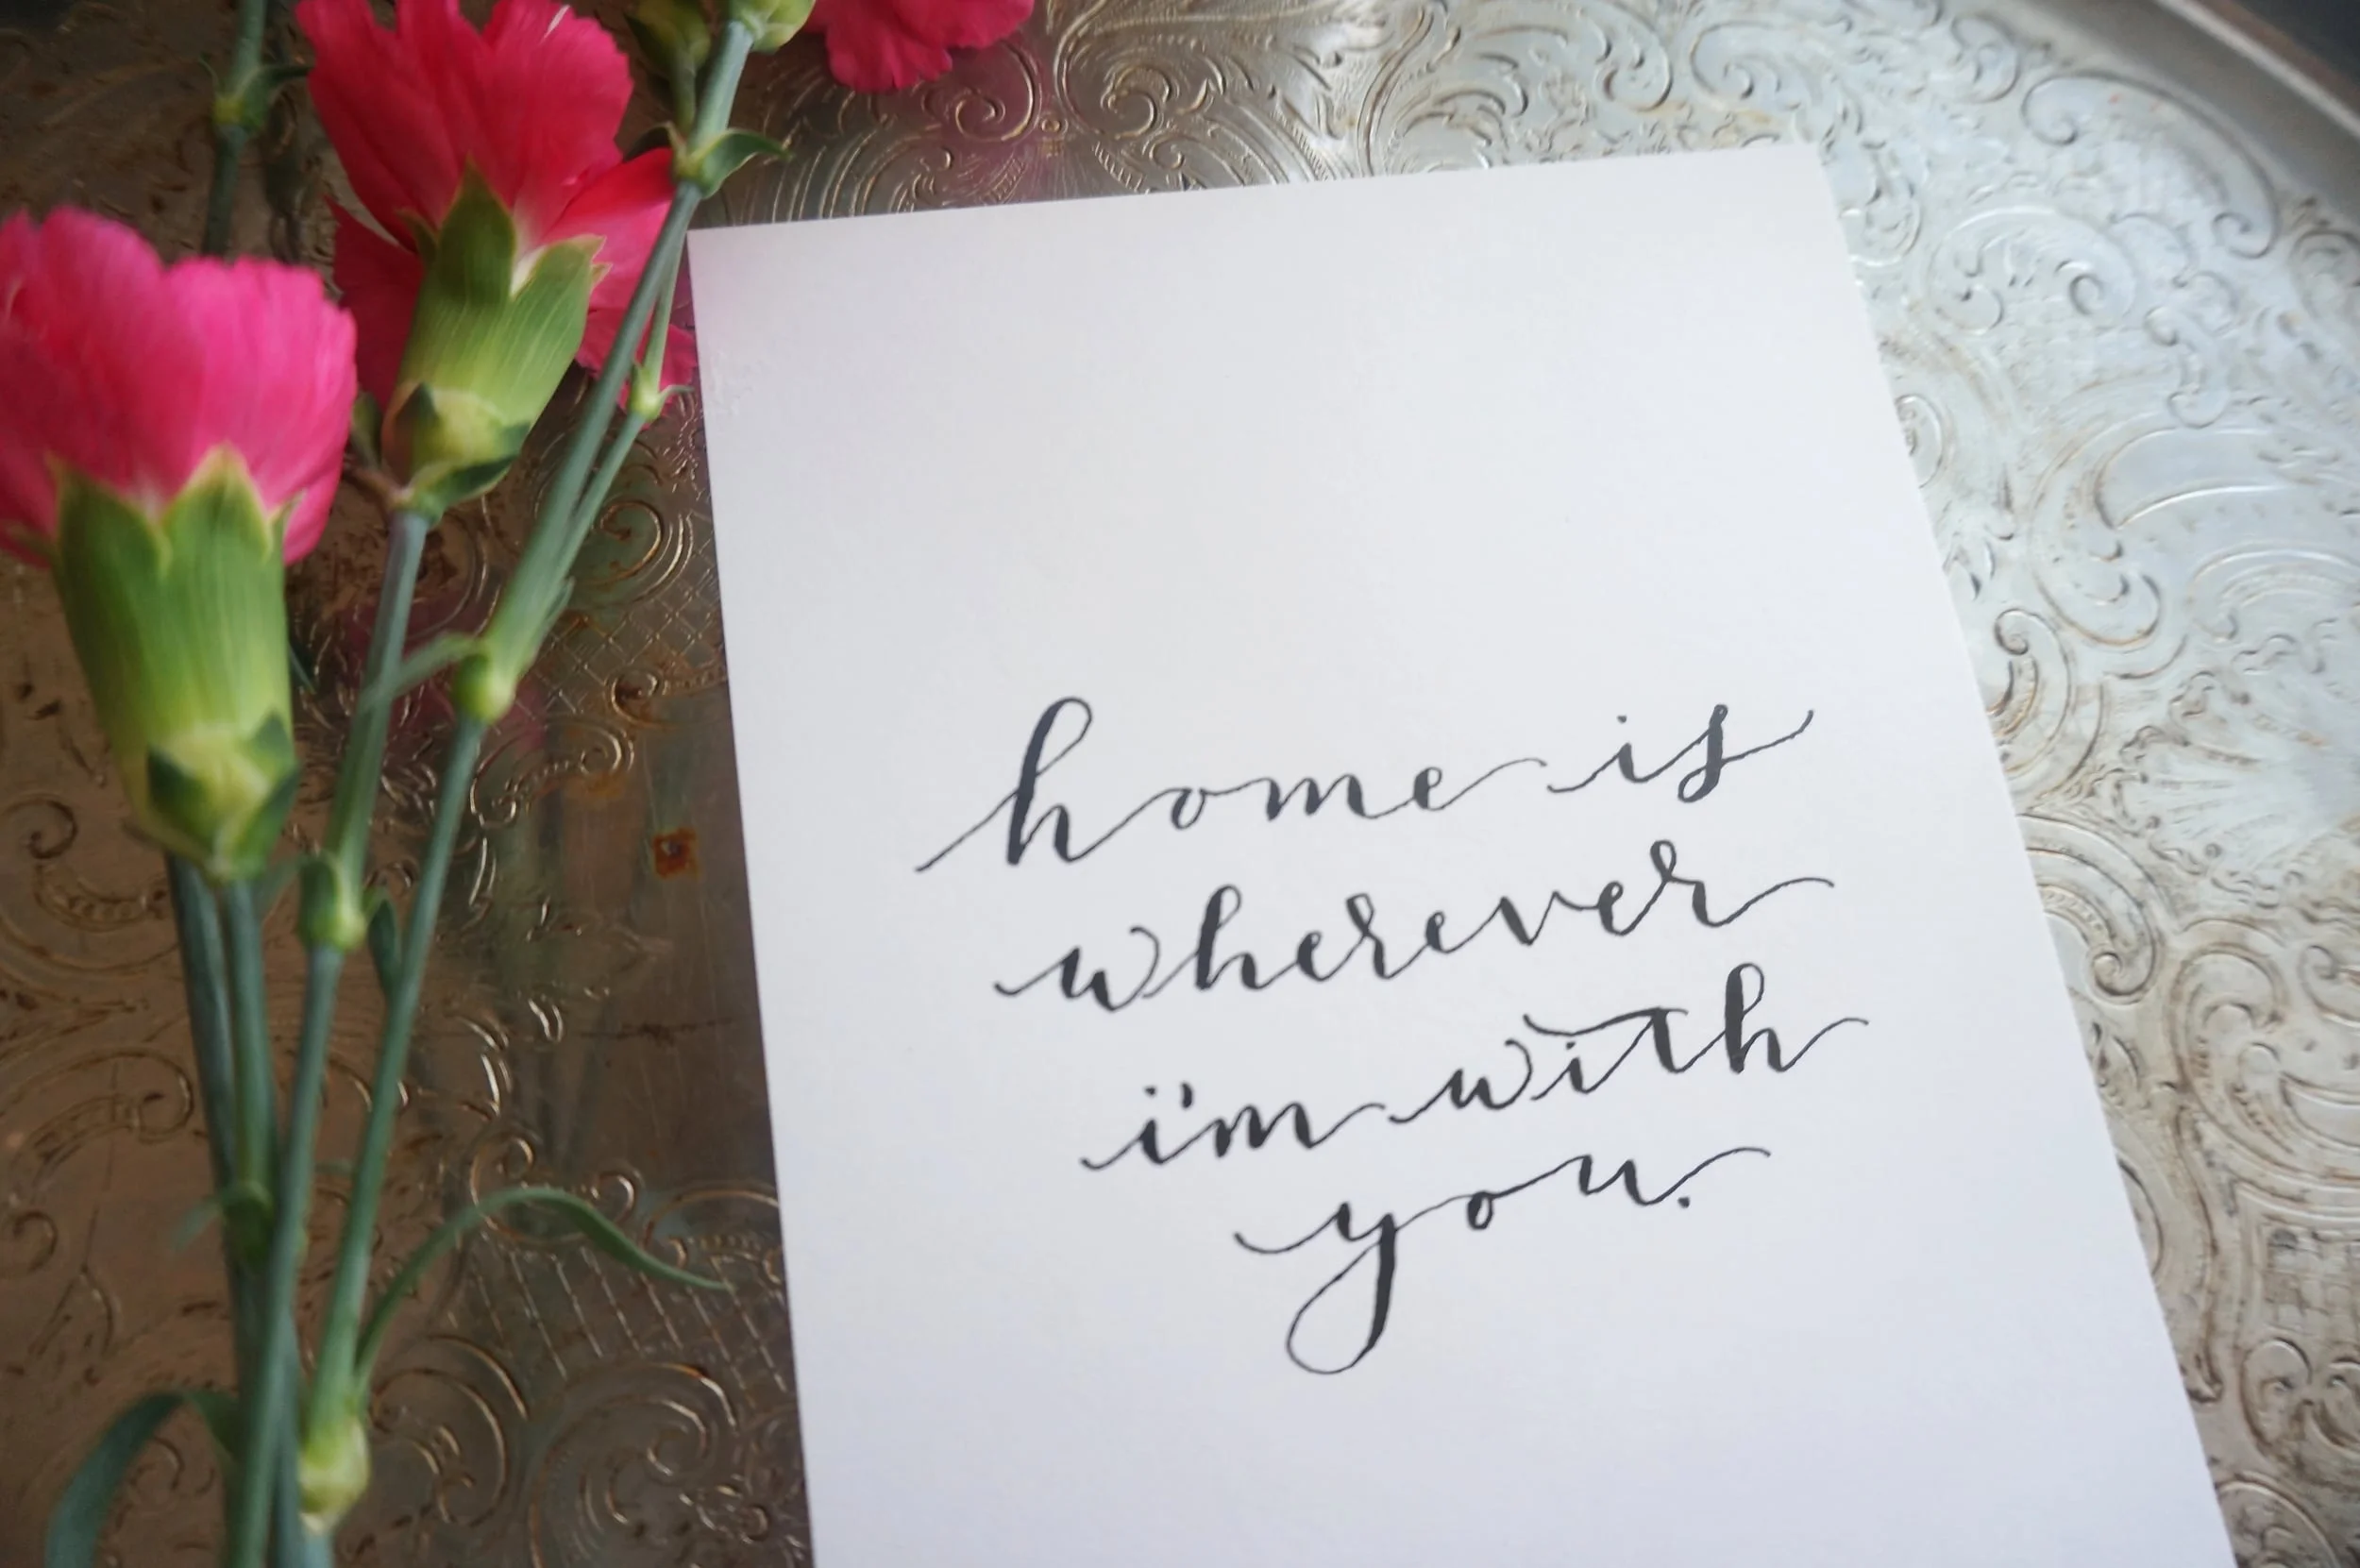 home is
wherever
i'm with
you.